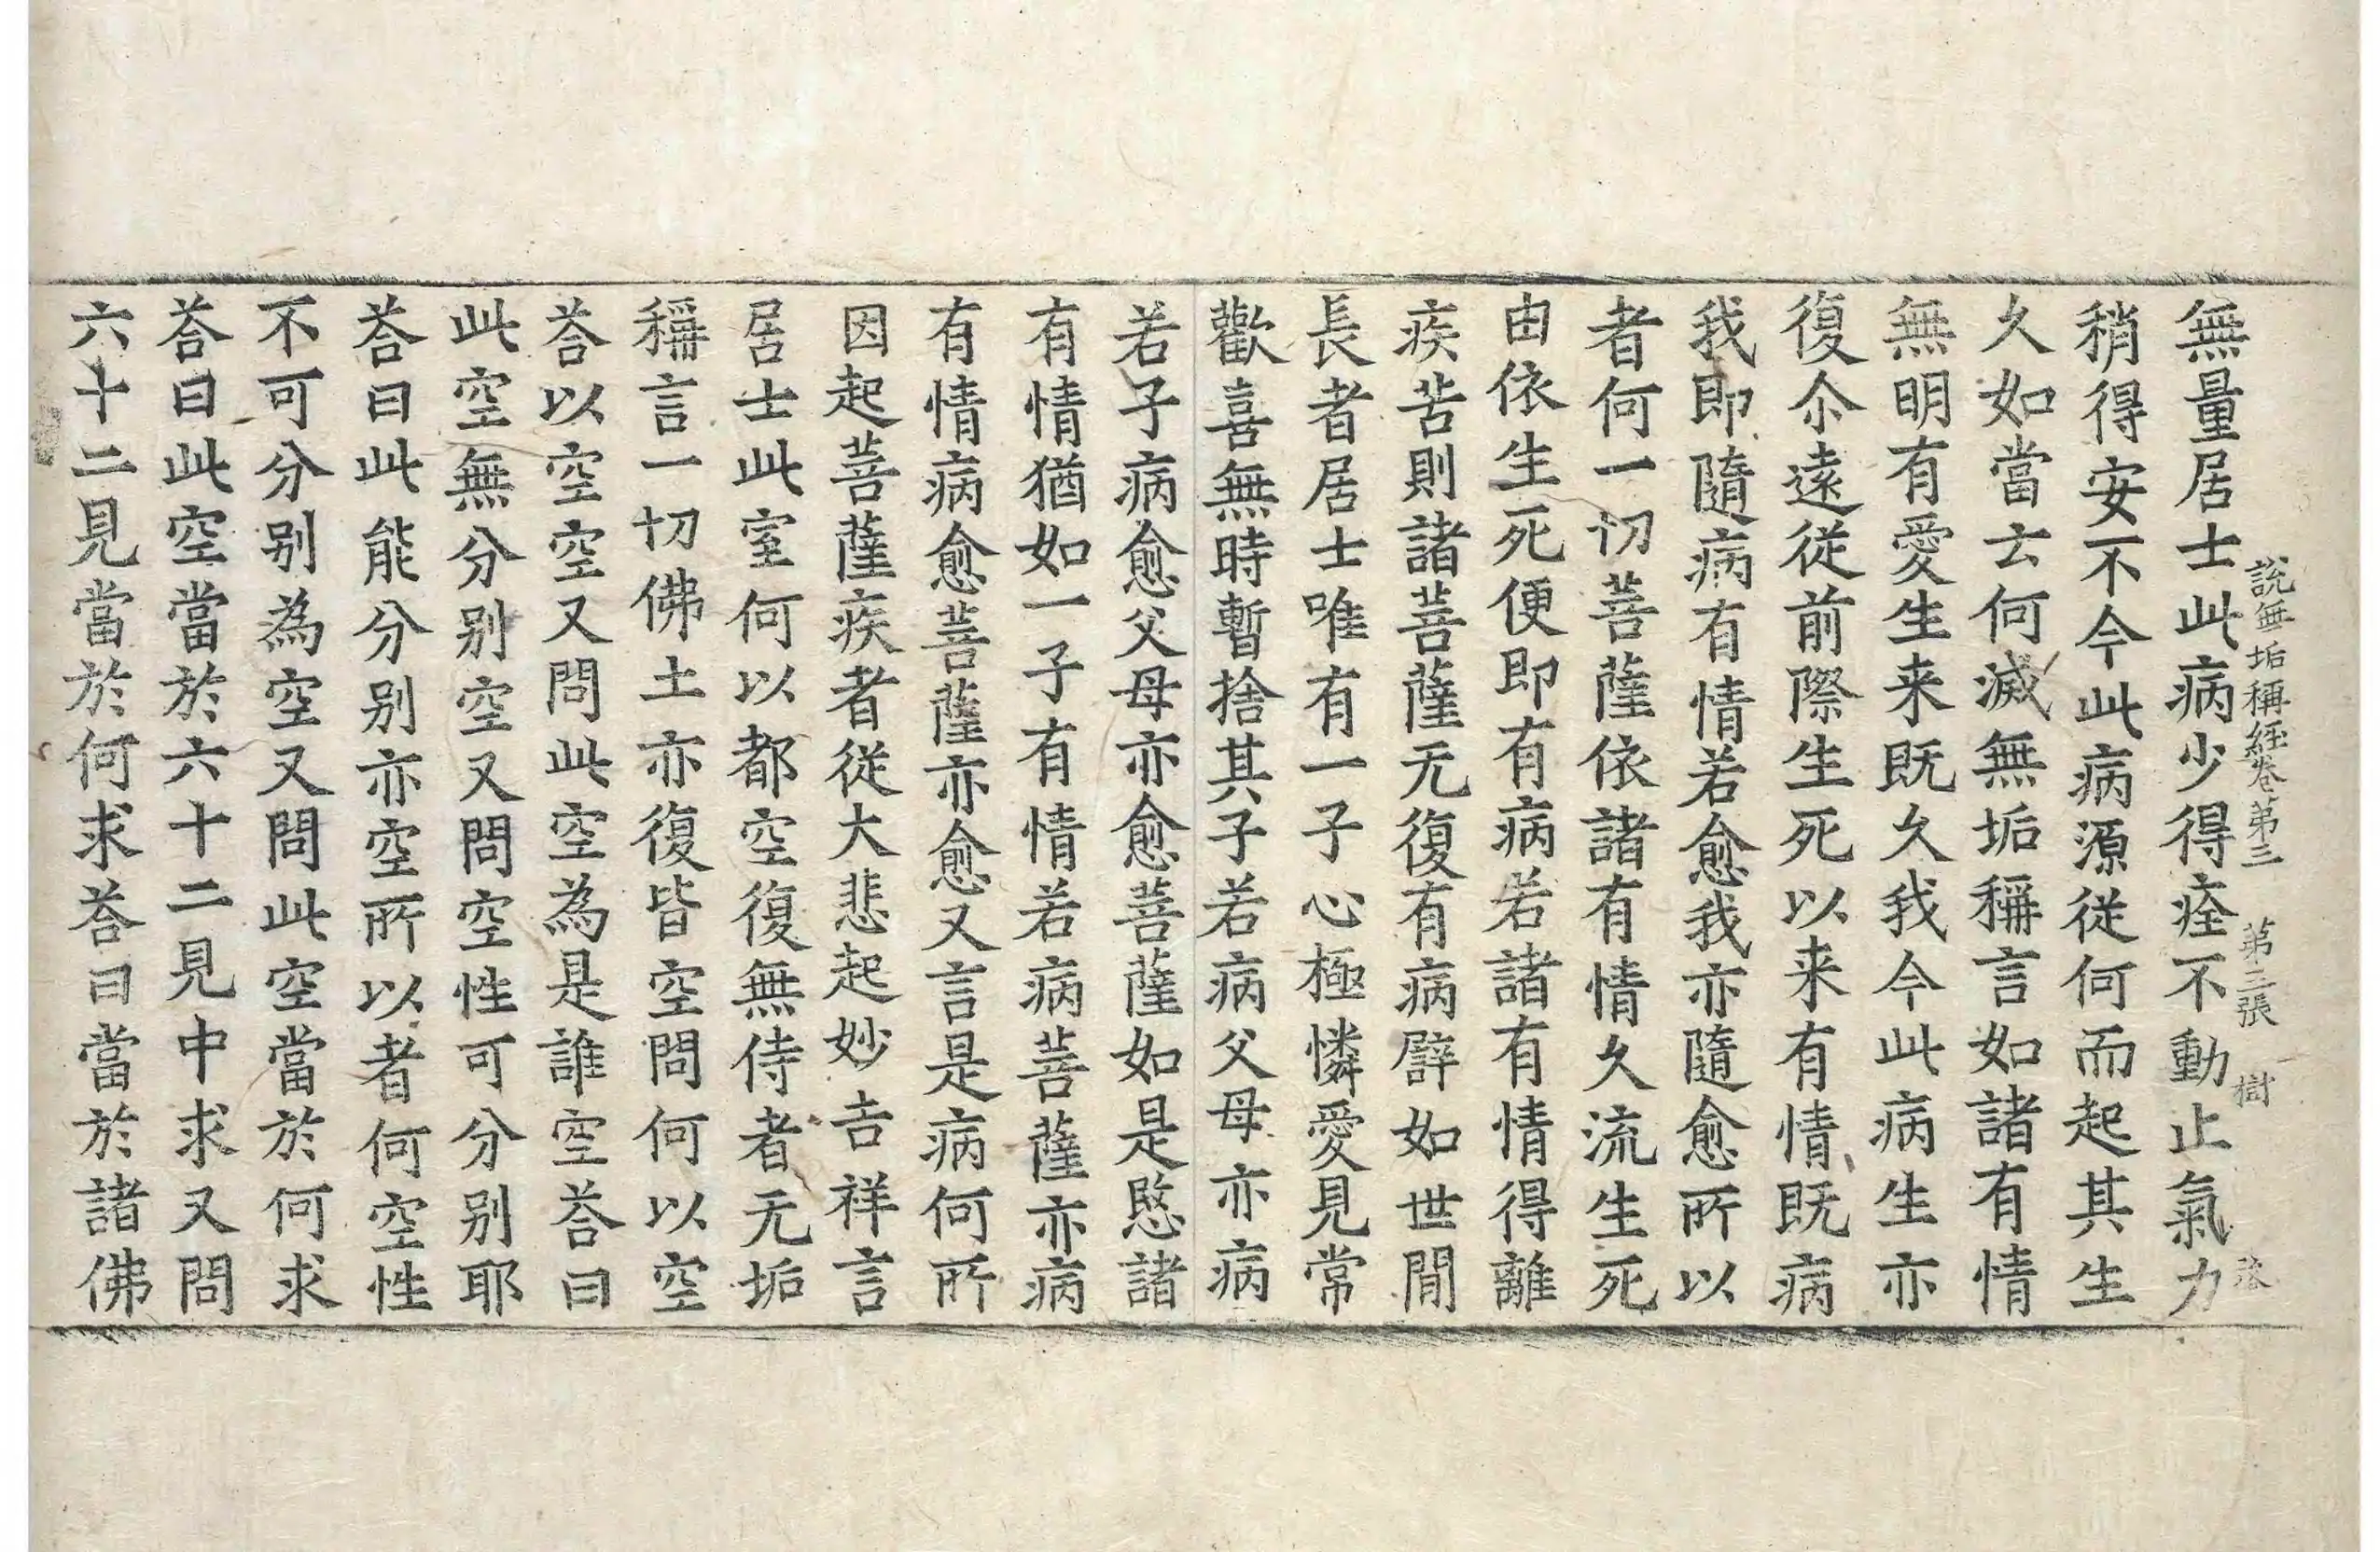 說無垢稱經卷第三 第三張 樹
無量居士此病少得痊不動止氣力
稍得安不今此病源從何而起其生
久如當云何滅無垢稱言如諸有情
無明有愛生来既久我今此病生亦
復尒遠從前際生死以来有情既病
我即隨病有情若愈我亦隨愈所以
者何一切菩薩依諸有情久流生死
由依生死便即有病若諸有情得離
疾苦則諸菩薩无復有病譬如世閒
長者居士唯有一子心極憐愛見常
歡喜無時暫捨其子若病父母亦病
若子病愈父母亦愈菩薩如是愍諸
有情猶如一子有情若病菩薩亦病
有情病愈菩薩亦愈又言是病何所
因起菩薩疾者從大悲起妙吉祥言
居士此室何以都空復無侍者无垢
稱言一切佛土亦復皆空問何以空
荅以空空又問此空為是誰空荅曰
此空無分别空又問空性可分别耶
荅曰此能分别亦空所以者何空性
不可分别為空又問此空當於何求
荅曰此空當於六十二見中求又問
六十二見當於何求荅曰當於諸佛